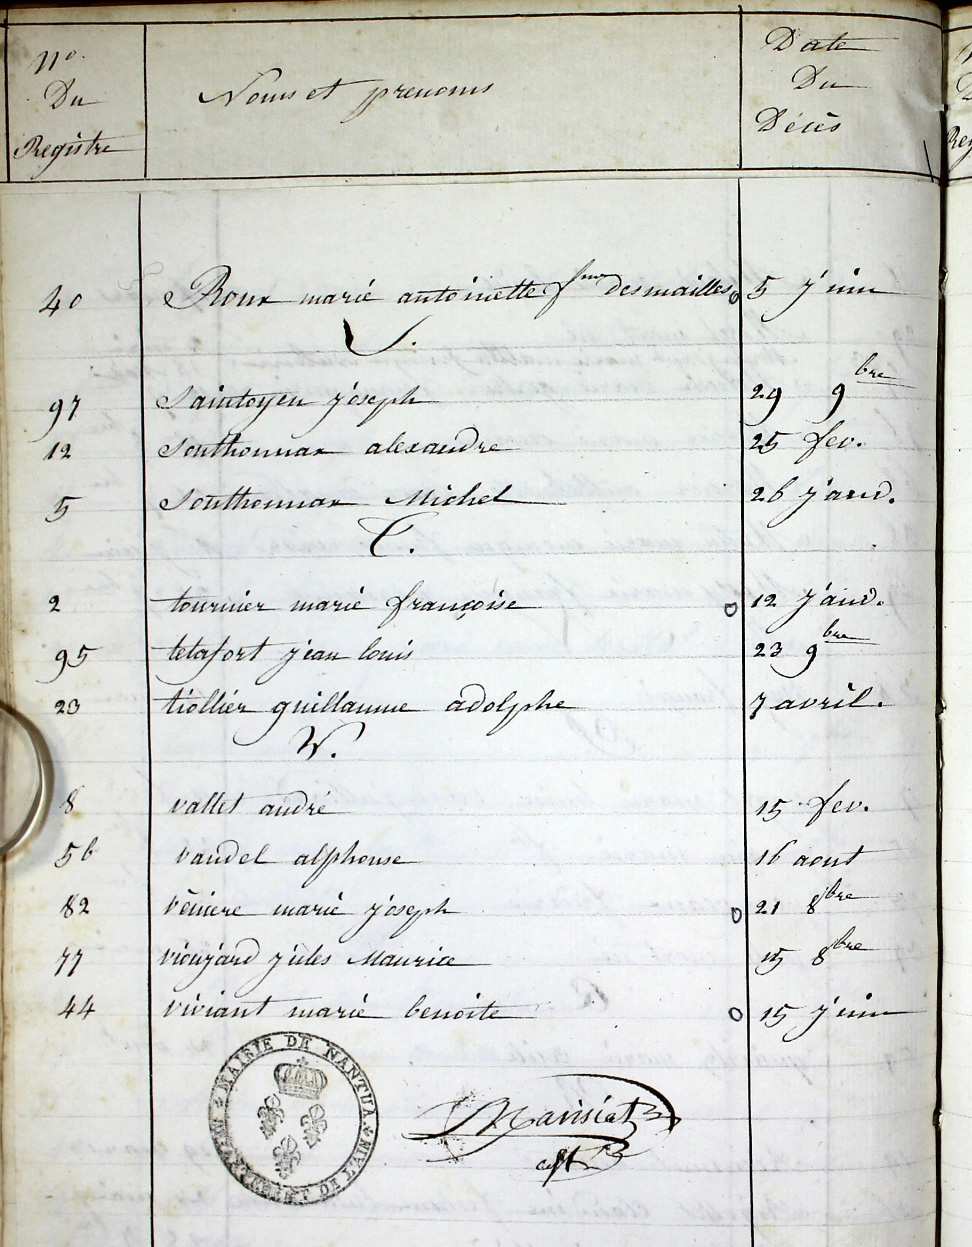 N° Du Registre
Noms et prenoms
Date Du Décès
40 Roux marie antoinette fme desmailles 5 juin
S.
97 Saintoyen joseph 29 9bre
12 Southonnax alexandre 25 fev.
5 Southonnax Michel 26 janv.
T.
2 tournier marie françoise 12 janv.
95 tetafort jean louis 23 9bre
23 tiollier guillaume adolphe 7 avril.
V.
8 vallet andré 15 fev.
56 vandel alphonse 16 aout
82 vêniere marie joseph 21 8bre
77 viougeard jules Maurice 15 8bre
44 viviant marie benoite 15 juin
MAIRIE DE NANTUA
DÉPARTEMENT DE L'AIN